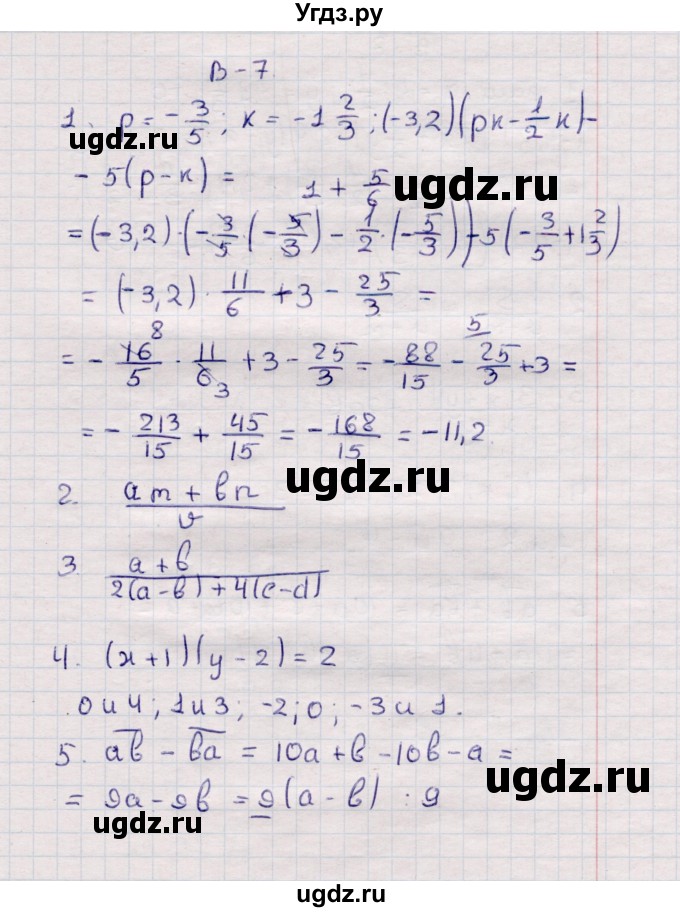 Угдз.ру
В - 7
1. p = -3/5; к = -1 2/3; (-3,2)(pк - 1/2 к) -
ugdz.ru
- 5(p - к) =
1 + 5/6
ugdz.ru
= (-3,2)·(-3/5·(-5/3) - 1/2·(-5/3)) - 5(-3/5 + 1 2/3)
= (-3,2)· 11/6 + 3 - 25/3 =
8 5
= - 16/5 · 11/6 3 + 3 - 25/3 = - 88/15 - 25/3 + 3 =
= - 213/15 + 45/15 = - 168/15 = -11,2.
2. (am + bn)/v
ugdz.ru
3. (a + b)/(2(a - b) + 4(c - d))
ugdz.ru
4. (x + 1)(y - 2) = 2
0 и 4; 1 и 3; -2; 0; -3 и 1.
5. ab - ba = 10a + b - 10b - a =
ugdz.ru
= 9a - 9b = 9(a - b) : 9
ugdz.ru
ugdz.ru